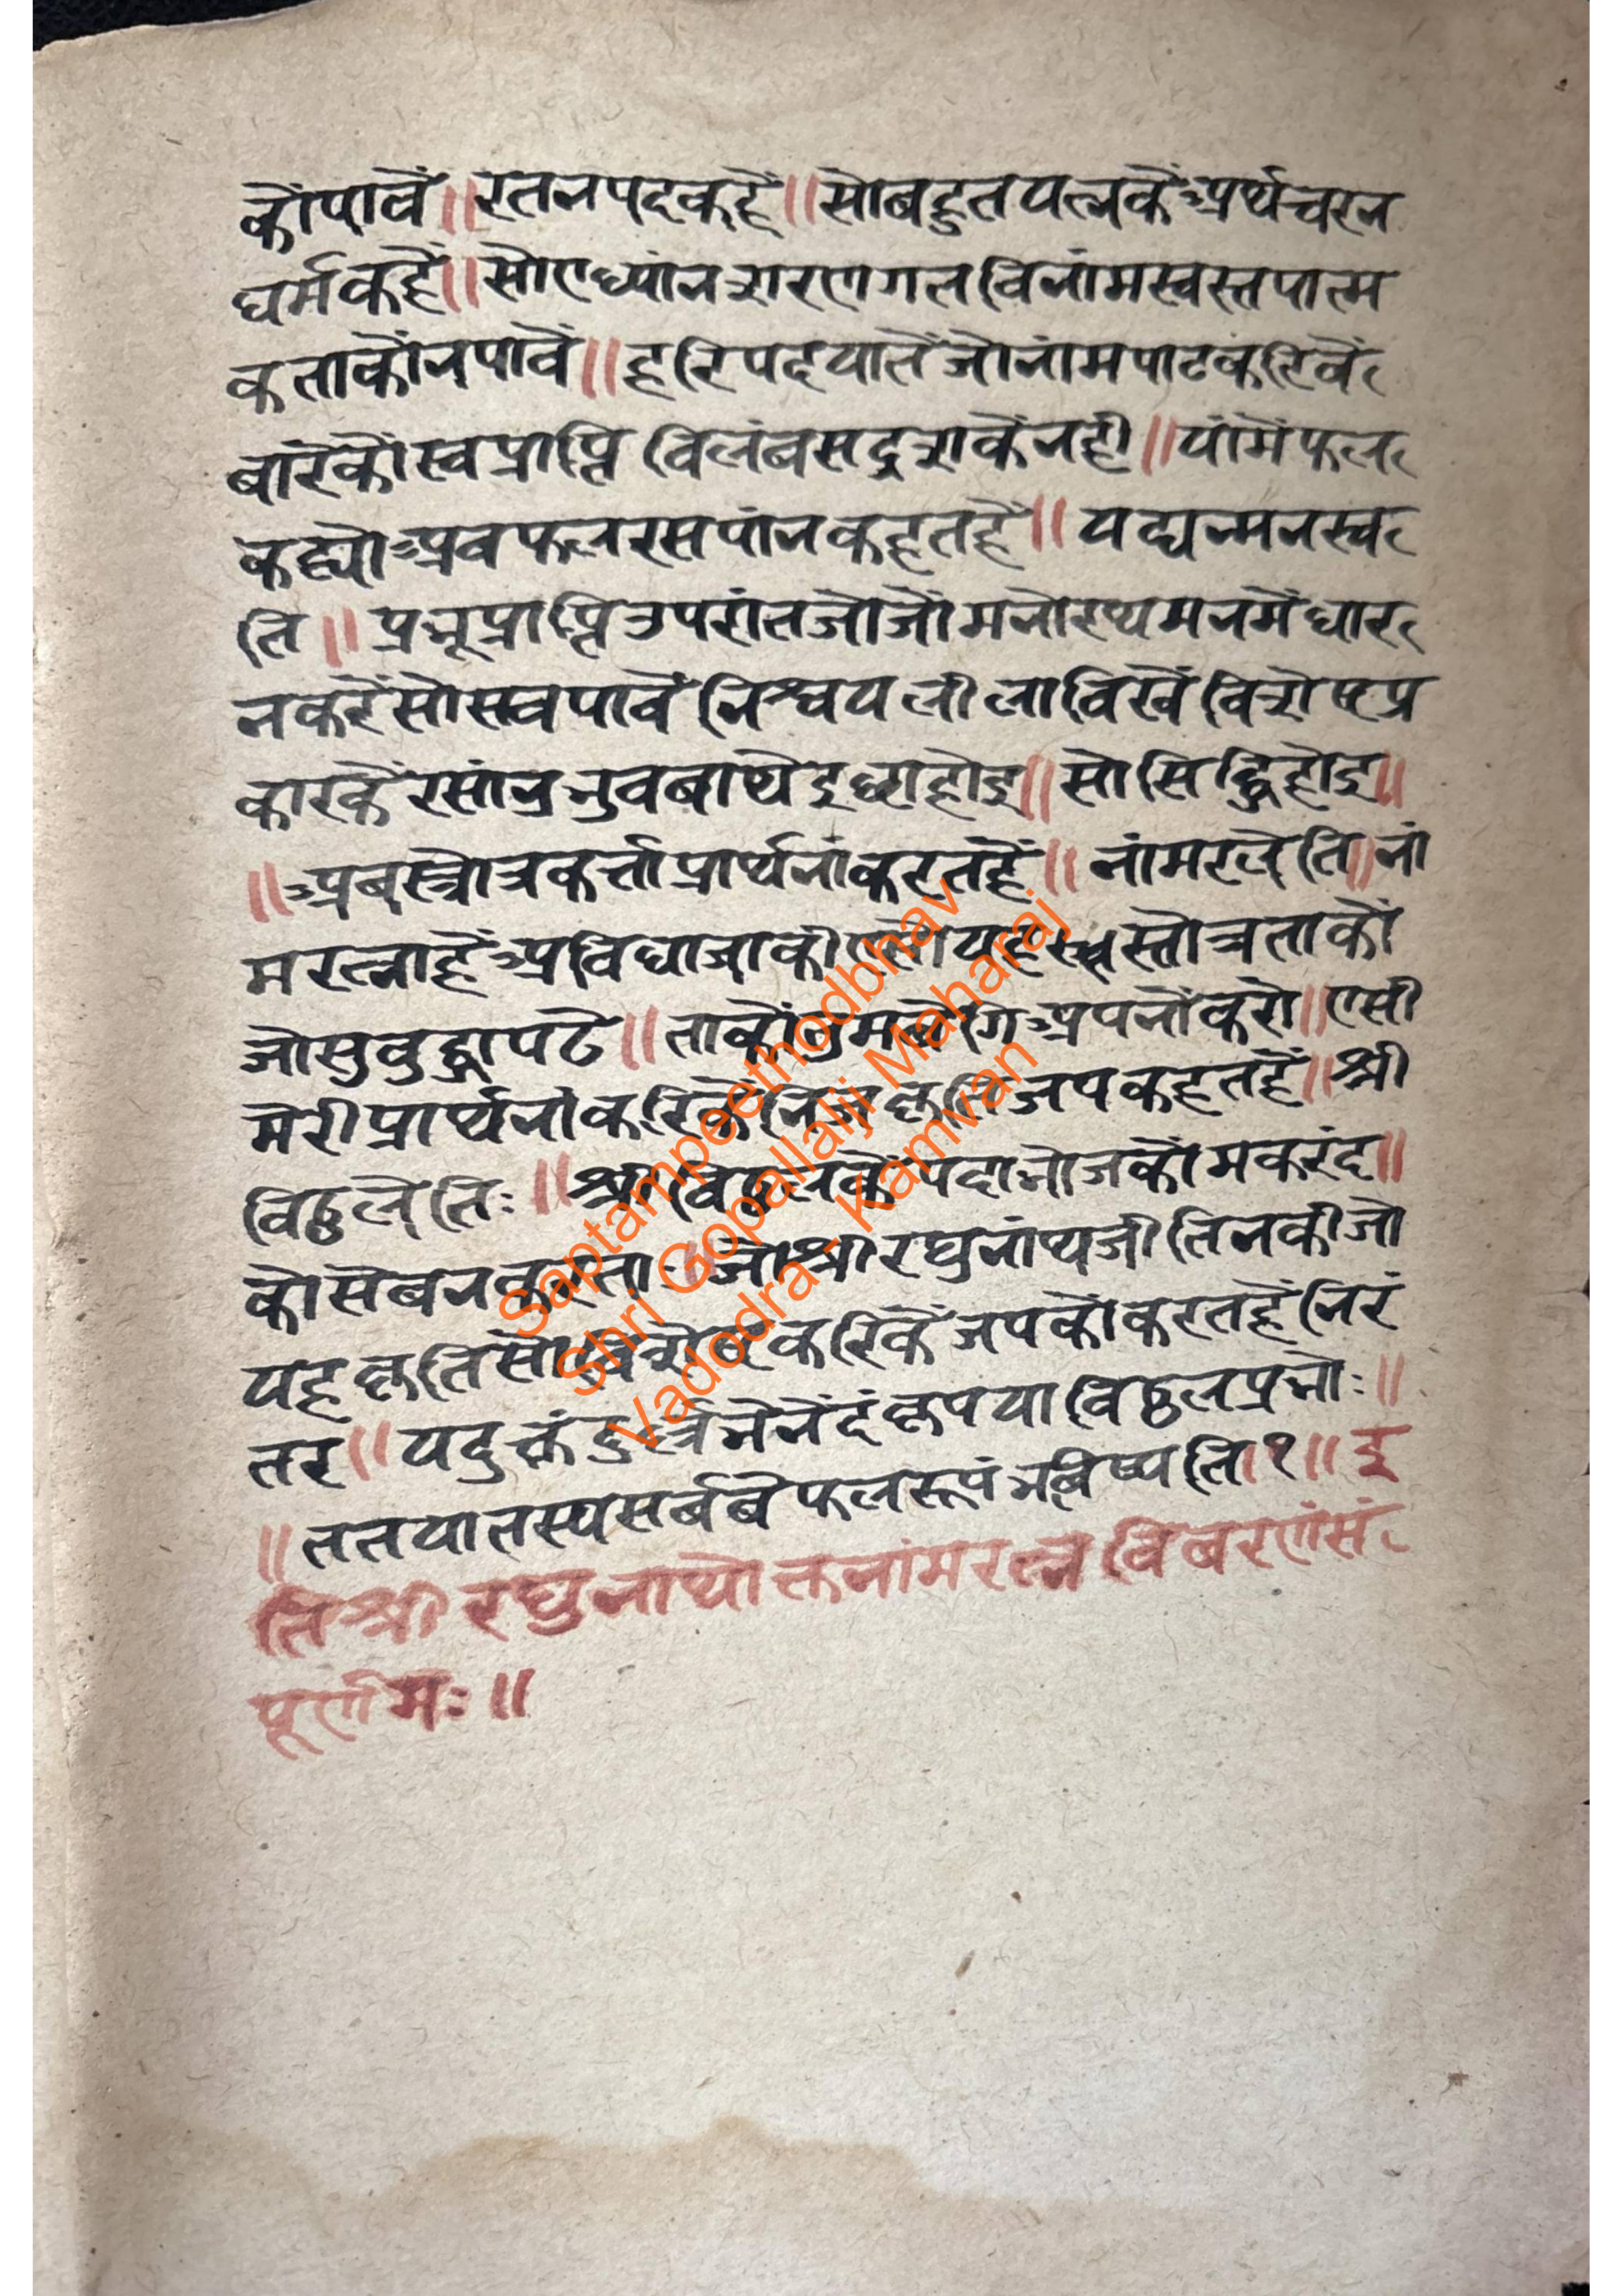 कोंपावें॥रतनपदकहें॥सोबहुतयत्नकेंअर्थचरन
धर्मकहें॥सोएध्यांनशरणगतविनांमस्वरूपात्म
कताकोंनपावें॥हरिपदयातेंजोनांमपाठकरिवें
बारेकोंस्वप्राप्तिविलंबसदृशकेंनही॥यांमेंफल
कह्योअवफलरसपांनकहतहें॥यद्यन्मनस्व
ति॥प्रभूप्राप्तिउपरांतजोजोंमनोरथमनमेंधार
नकरेंसोसवपावें निश्चयलीलाविखेंविशेषप्र
कारकेंरसांनुभुवबाथेइछाहोइ॥सोसिद्धिहोइ॥
॥अबस्तोत्रकर्त्ताप्रार्थनांकरतहें॥नांमरत्नेति॥नां
मरत्नाहेंअविधाजाकी एसोयहस्तोत्रताकों
जोसुवुद्धीपढे॥ताकोंतुमबेगिअपनोंकरो॥एसी
मेरीप्रार्थनांकरिकेंनिजकृतिजपकहतहें॥श्री
विठ्ठलेतिः॥श्रीविठ्ठलकेंपदाभोजकोंमकरंद॥
कोसेबनकरता॥जोश्रीरघुनांथजीतिनकीजो
यहकृतिसोविशेषकरिकेंजपकोंकरतहेंनिरं
तर॥यदुक्तं कृपयाविठ्ठलप्रभोः॥
॥ततयातस्यसर्बबेफलरूपंभबिष्यति१॥इ
तिश्रीरघुनाथोक्तनांमरत्नविबरणंसं
पूर्णमः॥
Saptampeethodbhav
Shri Gopallalji Maharaj
Vadodra - Kamvan